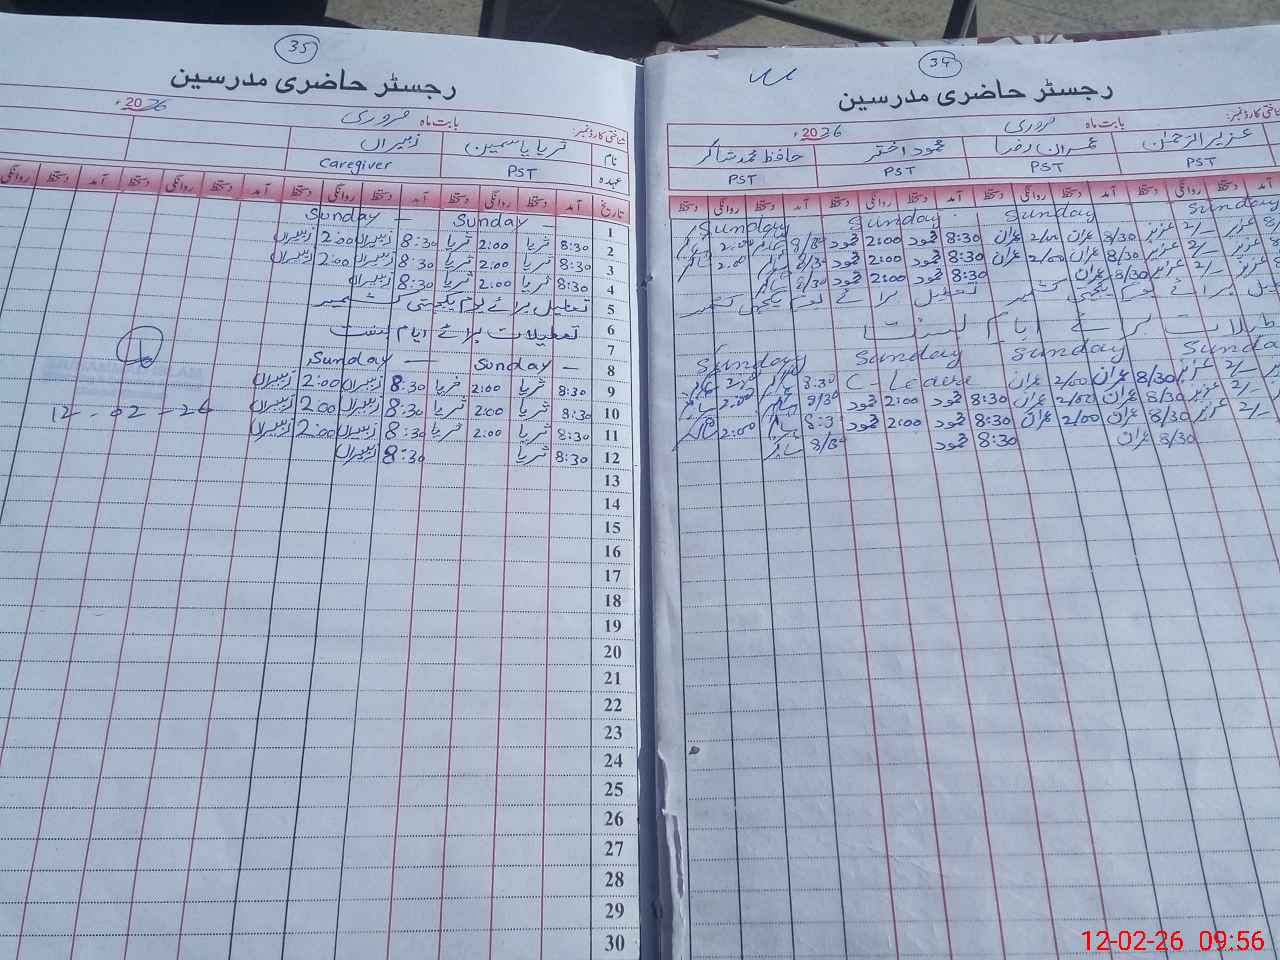 34
رجسٹر حاضری مدرسین
شناختی کارڈ نمبر: بابت ماہ فروری 2026ء
عزیز الرحمٰن عمران رضا محمود اختر حافظ محمد شاکر
PST PST PST PST
آمد دستخط روانگی دستخط آمد دستخط روانگی دستخط آمد دستخط روانگی دستخط آمد دستخط روانگی دستخط
Sunday Sunday Sunday Sunday
8/30 عمران 2/00 عمران 8:30 محمود 2:00 محمود 8/30 2:00
8/30 عمران 2/00 عمران 8:30 محمود 2:00 محمود 8/30 2:00
8/30 عمران 8:30 محمود 2:00 محمود 8/30
تعطیل برائے یوم یکجہتی کشمیر
تعطیلات برائے ایام بسنت
Sunday Sunday Sunday Sunday
8/30 عمران 2/00 عمران C-Leave 8:30
8/30 عمران 2/00 عمران 8:30 محمود 2:00 محمود 2:00
8/30 عمران 2/00 عمران 8:30 محمود 2:00 محمود 2:00
8/30 عمران 8:30 محمود 8/30
35
رجسٹر حاضری مدرسین
شناختی کارڈ نمبر: بابت ماہ فروری 2026ء
نام ثریا یاسمین زنیراں
عہدہ PST Caregiver
تاریخ آمد دستخط روانگی دستخط آمد دستخط روانگی دستخط آمد دستخط روانگی دستخط آمد دستخط روانگی
1 Sunday — Sunday —
2 8:30 ثریا 2:00 ثریا 8:30 زنیراں 2:00 زنیراں
3 8:30 ثریا 2:00 ثریا 8:30 زنیراں 2:00 زنیراں
4 8:30 ثریا 2:00 ثریا 8:30 زنیراں
5 تعطیل برائے یوم یکجہتی کشمیر
6 تعطیلات برائے ایام بسنت
7
8 Sunday — Sunday —
9 8:30 ثریا 2:00 ثریا 8:30 زنیراں 2:00 زنیراں
10 8:30 ثریا 2:00 ثریا 8:30 زنیراں 2:00 زنیراں
11 8:30 ثریا 2:00 ثریا 8:30 زنیراں 2:00 زنیراں
12 8:30 ثریا 8:30 زنیراں
12-02-26
13
14
15
16
17
18
19
20
21
22
23
24
25
26
27
28
29
30
12-02-26 09:56